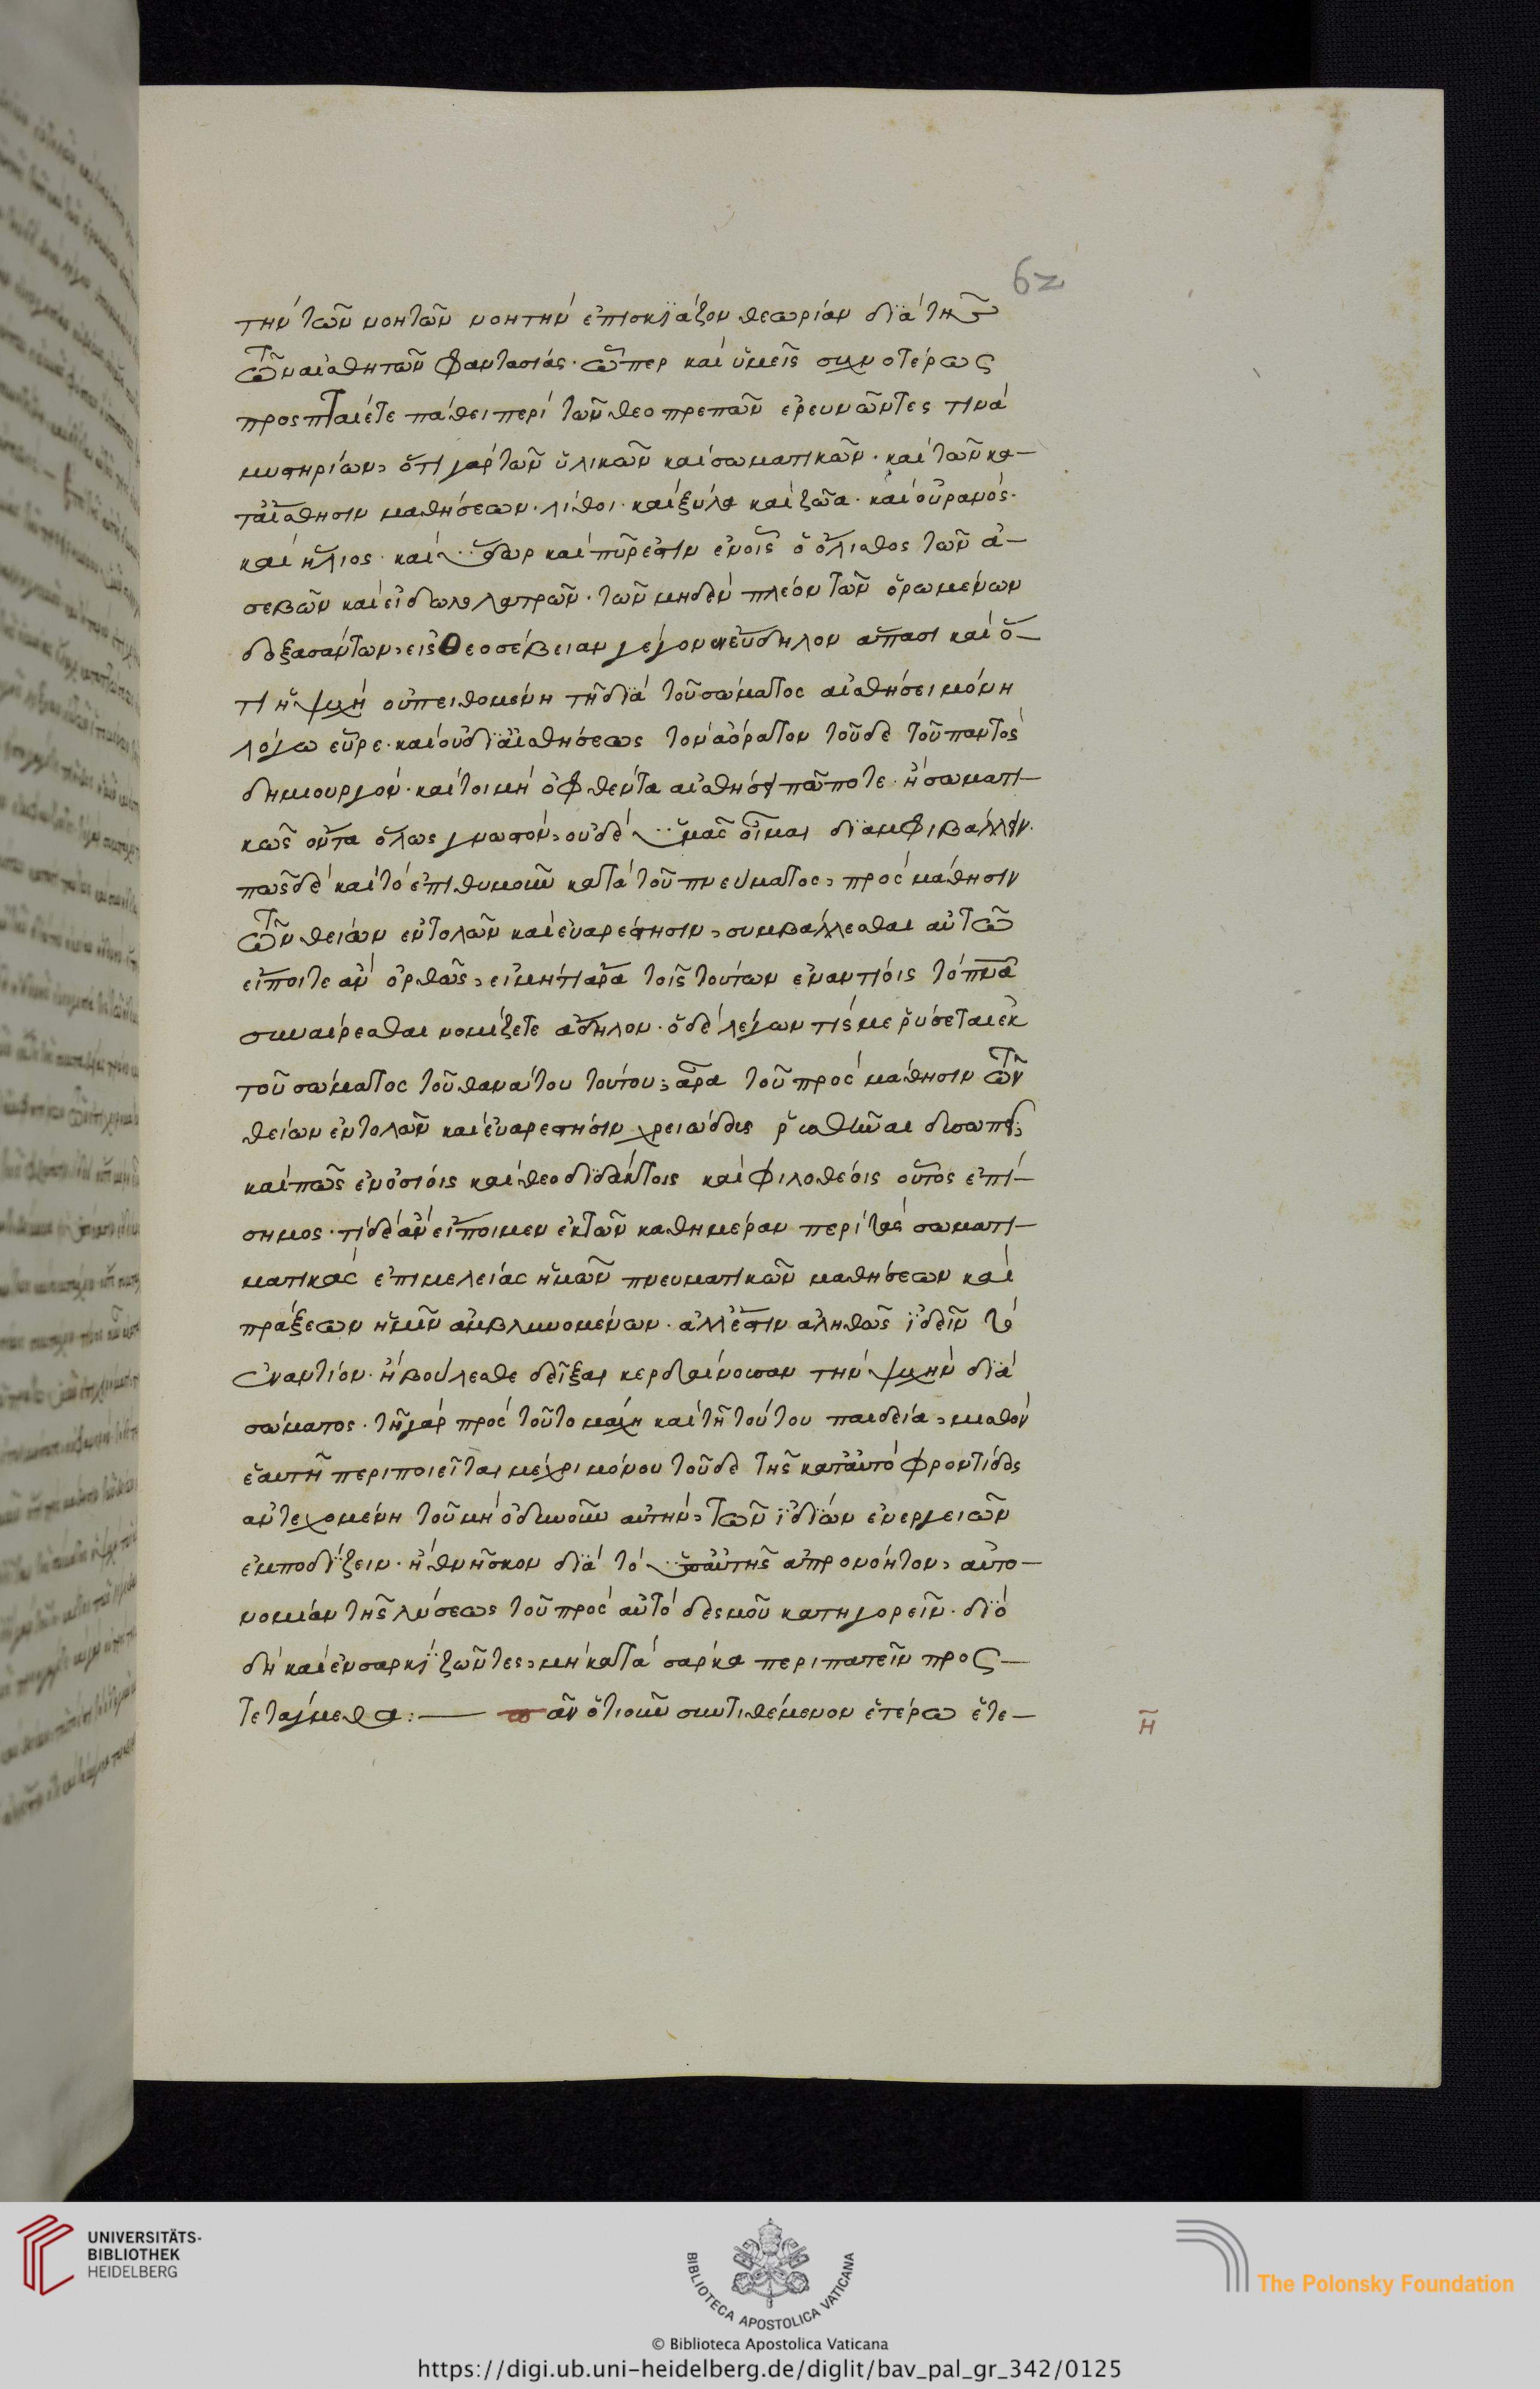 62
τὴν τῶν νοητῶν νοητὴν ἐπισκϊάζον θεωρίαν δϊὰ τῆς
τῶν αἰσθητῶν φαντασίας· ᾧπερ καὶ ὑμεῖς συχνοτέρως
προσπταίετε πάθει περὶ τῶν θεοπρεπῶν ἐρευνῶντες τινὰ
μυστηρίων, ὅτι γὰρ τῶν ὑλικῶν καὶ σωματικῶν· καὶ τῶν κα–
ταἴσθησιν μαθήσεων· λίθοι· καὶ ξύλα καὶ ζῶα· καὶ οὐρανός·
καὶ ἥλιος· καὶ ὕδωρ καὶ πῦρ ἐστιν ἐν οἷς ὁ ὄλισθος τῶν ἀ–
σεβῶν καὶ εἰδωλολατρῶν· τῶν μηδὲν πλέον τῶν ὁρωμένων
δοξασάντων, εἰς θεοσέβειαν γέγονεν εὔδηλον ἅπασι καὶ ὅ–
τι ἡ ψυχὴ οὐ πειθομένη τῆ δϊὰ τοῦ σώματος αἰσθήσει μόνη
λόγω εὗρε· καὶ οὐ δϊαἰσθήσεως τὸν ἀόρατον τοῦδε τοῦ παντὸς
δημιουργόν· καί τοι μὴ ὀφθέντα αἰσθήσει πώποτε· ἢ σωματι–
κῶς ὄντα ὅλως γνωστόν, οὐδὲ ὑμᾶς οἶμαι δϊαμφιβάλλειν·
πῶς δὲ καὶ τὸ ἐπιθυμοῦν κατὰ τοῦ πνεύματος, πρὸς μάθησιν
τῶν θείων ἐντολῶν καὶ εὐαρέστησιν, συμβάλλεσθαι αὐτῶ
εἴποιτε ἂν ὀρθῶς, εἰ μήτι ἄρα τοῖς τούτων ἐναντίοις τὸ πνα
συναίρεσθαι νομίζετε ἄδηλον· ὁ δὲ λέγων τίς με ῥύσεται ἐκ
τοῦ σώματος τοῦ θανάτου τούτου; ἆρα τοῦ πρὸς μάθησιν τῶν
θείων ἐντολῶν καὶ εὐαρέστησιν χρειώδους ῥυσθῆναι δυσωπεῖ;
καὶ πῶς ἐν ὁσίοις καὶ θεοδϊδάκτοις καὶ φιλοθέοις οὗτος ἐπί–
σημος· τί δὲ ἂν εἴποιμεν ἐκ τῶν καθημέραν περὶ τὰς σωματι–
ματικὰς ἐπιμελείας ἡμῶν πνευματικῶν μαθήσεων καὶ
πράξεων ἡμῖν ἀμβλυνομένων· ἀλλἔστιν ἀληθῶς ἰδεῖν τὸ
ἐναντίον· ἢ βούλεσθε δεῖξαι κερδαίνουσαν τὴν ψυχὴν δϊὰ
σώματος· τῆ γὰρ πρὸς τοῦτο μάχη καὶ τῆ τούτου παιδεία, μισθὸν
ἑαυτῆ περιποιεῖται μέχρι μόνου τοῦδε τῆς καταὐτὸ φροντίδος
ἀντεχομένη τοῦ μὴ ὀδυνοῦν αὐτὴν, τῶν ἰδϊων ἐνεργειῶν
ἐμποδίζειν· ἢ θνῆσκον δϊὰ τὸ ὑπαὐτῆς ἀπρονόητον, αὐτο–
νομίαν τῆς λύσεως τοῦ πρὸς αὐτὸ δεσμοῦ κατηγορεῖν· δϊὸ
δὴ καὶ ἐν σαρκὶ ζῶντες, μὴ κατὰ σάρκα περιπατεῖν προς–
τετάγμεθα:— ἂν ὁτιοῦν συντιθέμενον ἑτέρω ἕτε–
η
UNIVERSITÄTS-
BIBLIOTHEK
HEIDELBERG
BIBLIOTECA APOSTOLICA VATICANA
© Biblioteca Apostolica Vaticana
The Polonsky Foundation
https://digi.ub.uni-heidelberg.de/diglit/bav_pal_gr_342/0125